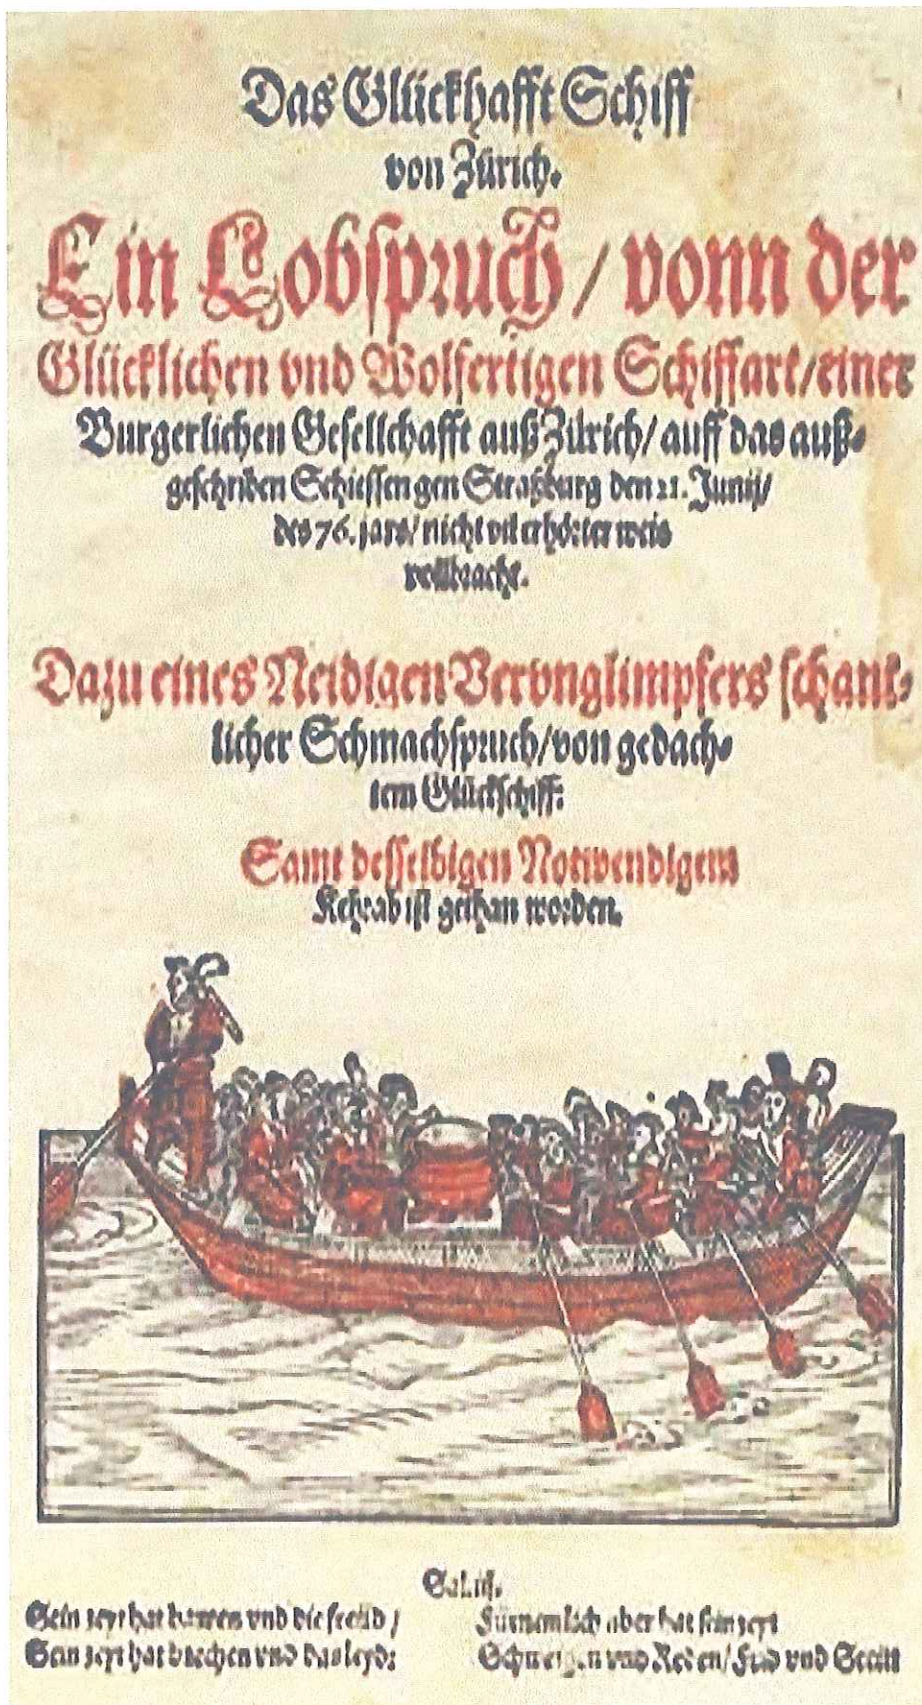 Das Glückhafft Schiff
von Zürich.
Ein Lobspruch / vonn der
Glücklichen vnd Wolfertigen Schiffart / einer
Burgerlichen Gesellschafft auß Zürich / auff das auß-
geschriben Schiessen gen Straßburg den 21. Junij /
des 76. jars / nicht vil erhörter weis
vollbracht.
Dazu eines Neidigen Verunglimpfers schant-
licher Schmachspruch / von gedach-
tem Glückschiff:
Samt desselbigen Notwendigem
Kehrab ist gethan worden.
Sein zeyt hat bawen vnd die freüd /
Sein zeyt hat brechen vnd das leyd:
Fürnemlich aber hat sein zeyt
Schweigen vnd Reden / Frid vnd Streitt